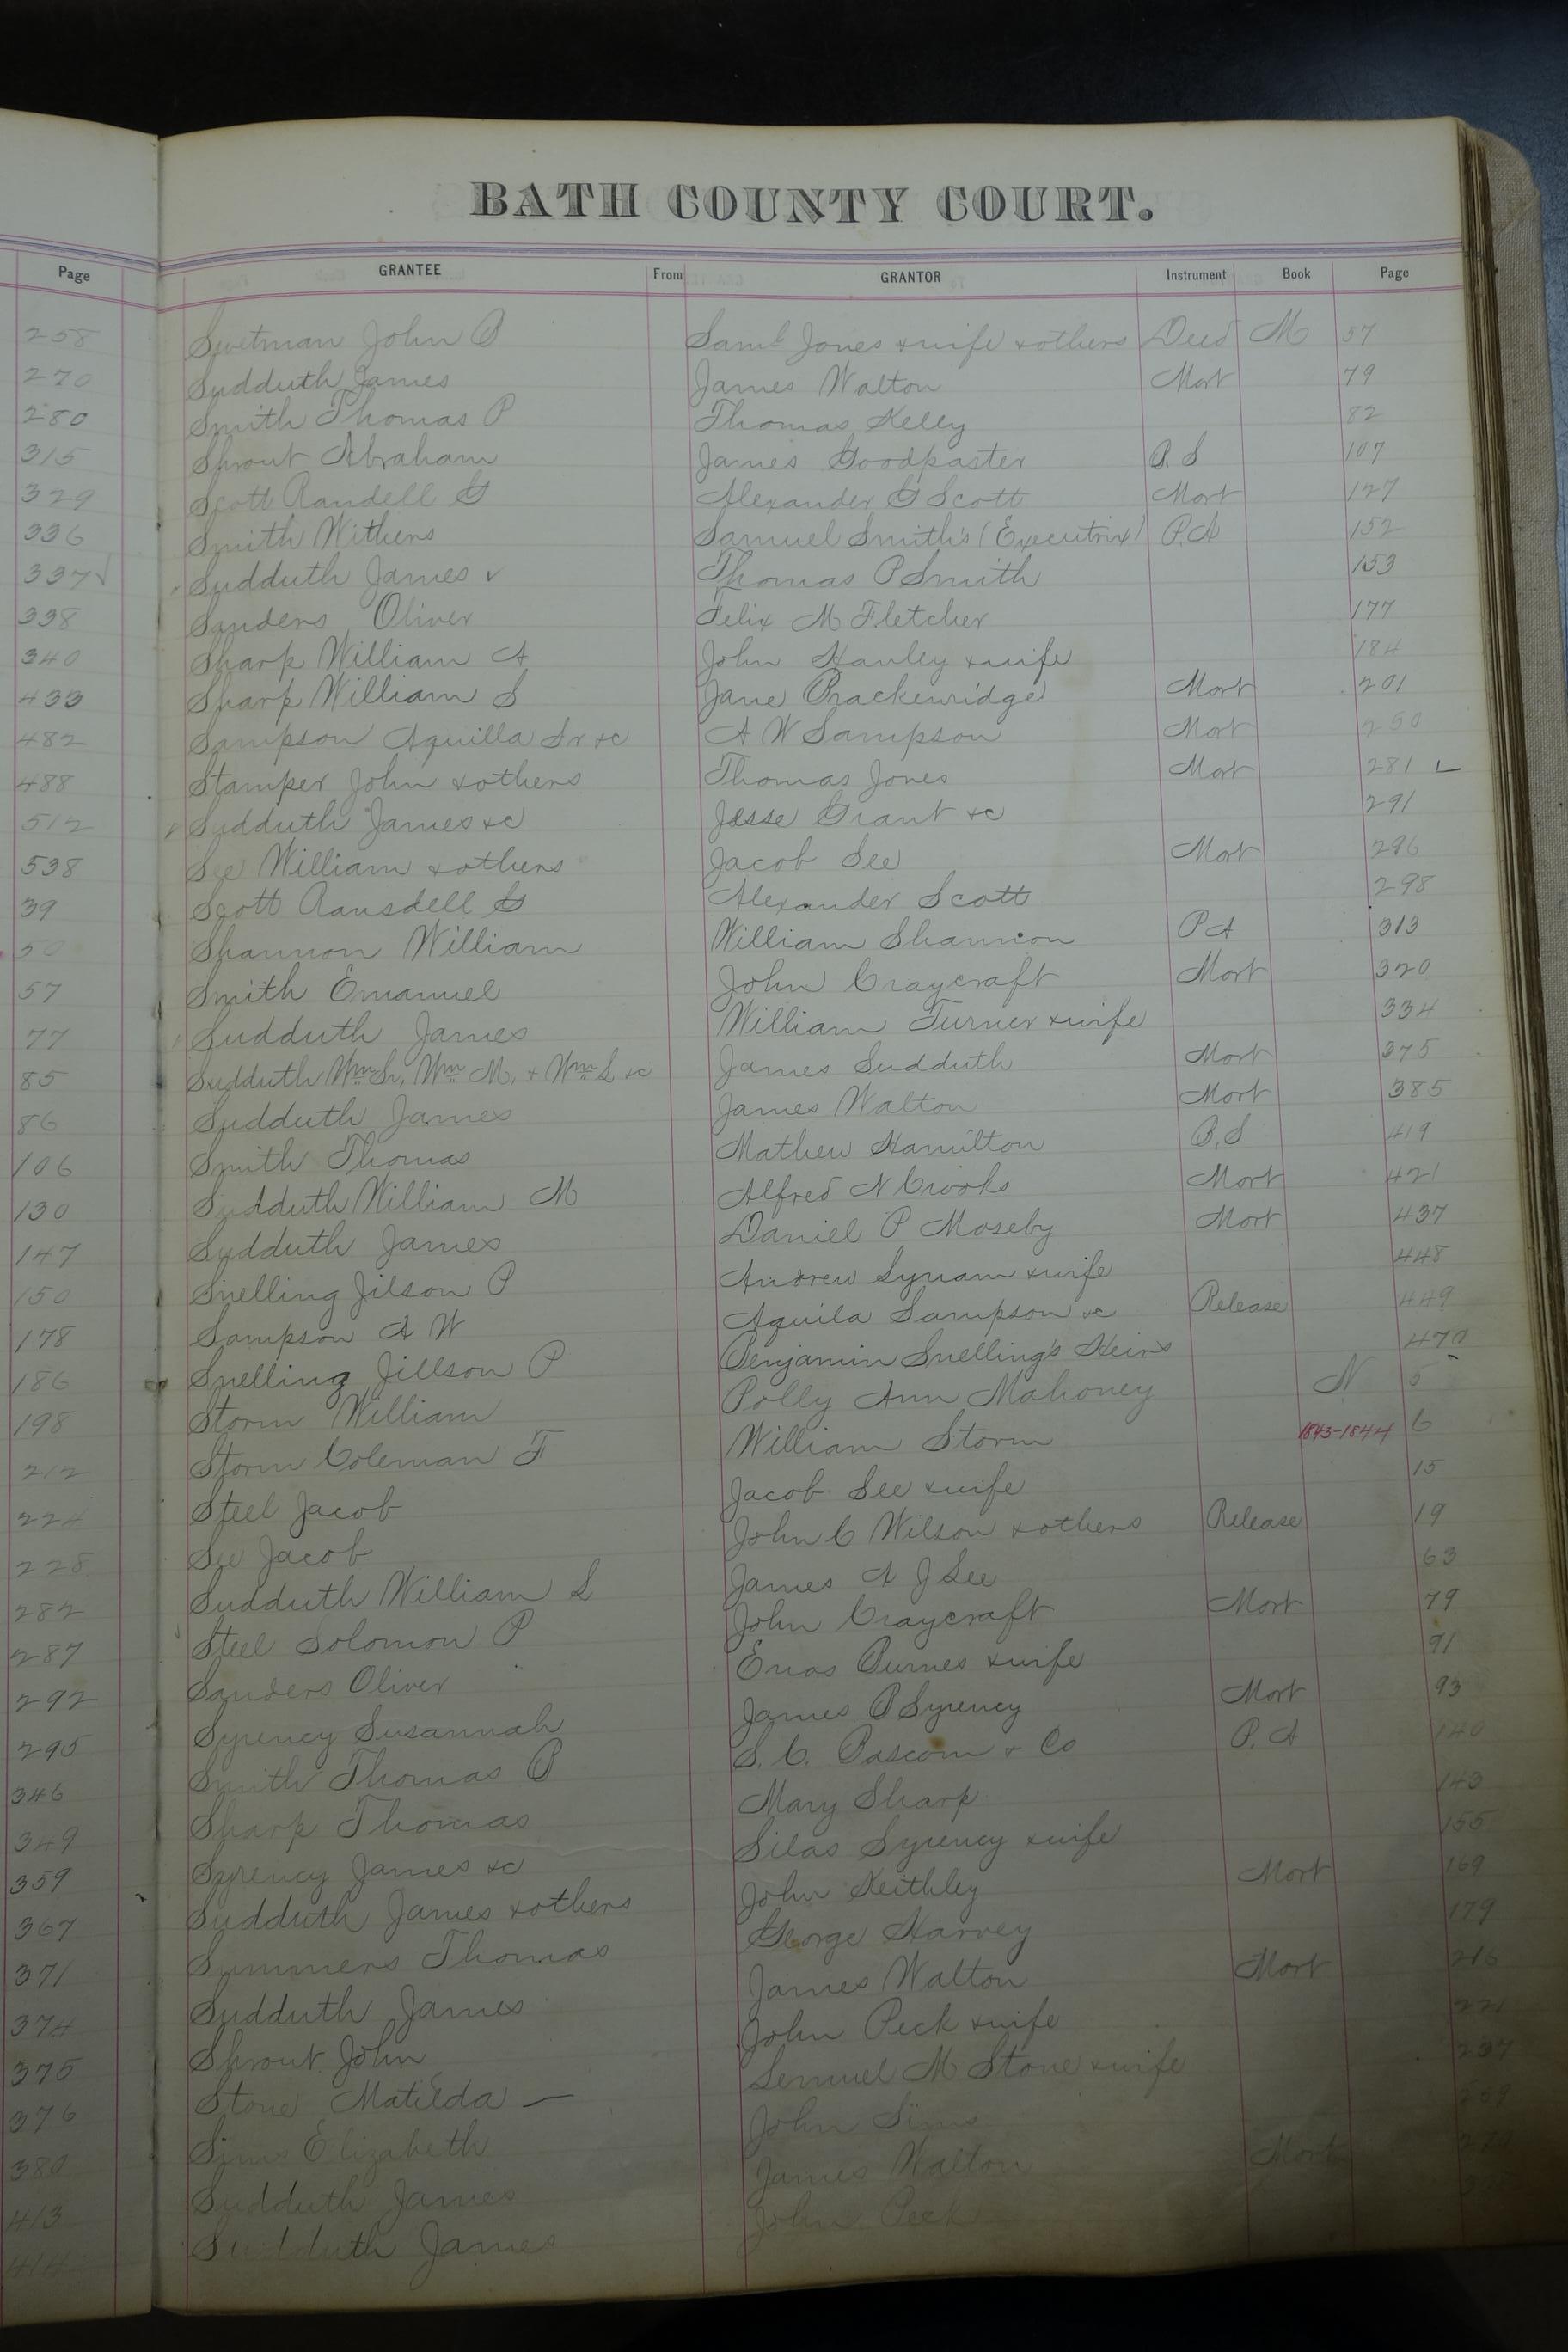 BATH COUNTY COURT.
Page GRANTEE From GRANTOR Instrument Book Page
258 Swetman John B Saml Jones & wife & others Deed M 57
270 Sudduth James James Walton Mort 79
280 Smith Thomas P Thomas Kelly 82
315 Sprout Abraham James Goodpaster B. S 107
329 Scott Randell G Alexander G Scott Mort 127
336 Smith Withers Samuel Smith's (Executrix) P.A 152
337 √ Sudduth James v Thomas P Smith 153
338 Sanders Oliver Felix M Fletcher 177
340 Sharp William A John Hanley & wife 184
433 Sharp William S Jane Brackenridge Mort 201
482 Sampson Aquilla Sr &c A W Sampson Mort 250
488 Stamper John & others Thomas Jones Mort 281
512 Sudduth James &c Jesse Grant &c 291
538 See William & others Jacob See Mort 296
39 Scott Ransdell G Alexander Scott 298
50 Shannon William William Shannon P A 313
57 Smith Emanuel John Craycraft Mort 320
77 Sudduth James William Turner & wife 334
85 Sudduth Wm Sr, Wm M, & Wm L &c James Sudduth Mort 375
86 Sudduth James James Walton Mort 385
106 Smith Thomas Mathew Hamilton B.S 419
130 Sudduth William M Alfred N Crooks Mort 421
147 Sudduth James Daniel P Moseby Mort 437
150 Snelling Jilson P Andrew Lynam & wife 448
178 Sampson A W Aquila Sampson &c Release 449
186 Snelling Jillson P Benjamin Snelling's Heirs 470
198 Storm William Polly Ann Mahoney N 5
212 Storm Coleman F William Storm 1843-1844 6
224 Steel Jacob Jacob See & wife 15
228 See Jacob John C Wilson & others Release 19
282 Sudduth William L James A J See 63
287 Steel Solomon P John Craycraft Mort 79
292 Sanders Oliver Enos Burnes & wife 91
295 Syrency Susannah James B Syrency Mort 93
346 Smith Thomas B S. C. Bascom & Co P. A 140
349 Sharp Thomas Mary Sharp 143
359 Syrency James &c Silas Syrency & wife 155
367 Sudduth James & others John Keithley Mort 169
371 Summers Thomas George Harvey 179
374 Sudduth James James Walton Mort 216
375 Sprout John John Peck & wife 221
376 Stone Matilda — Lemuel M Stone & wife 237
380 Sims Elizabeth John Sims
413 Sudduth James James Walton Mort
414 Sudduth James John Peck